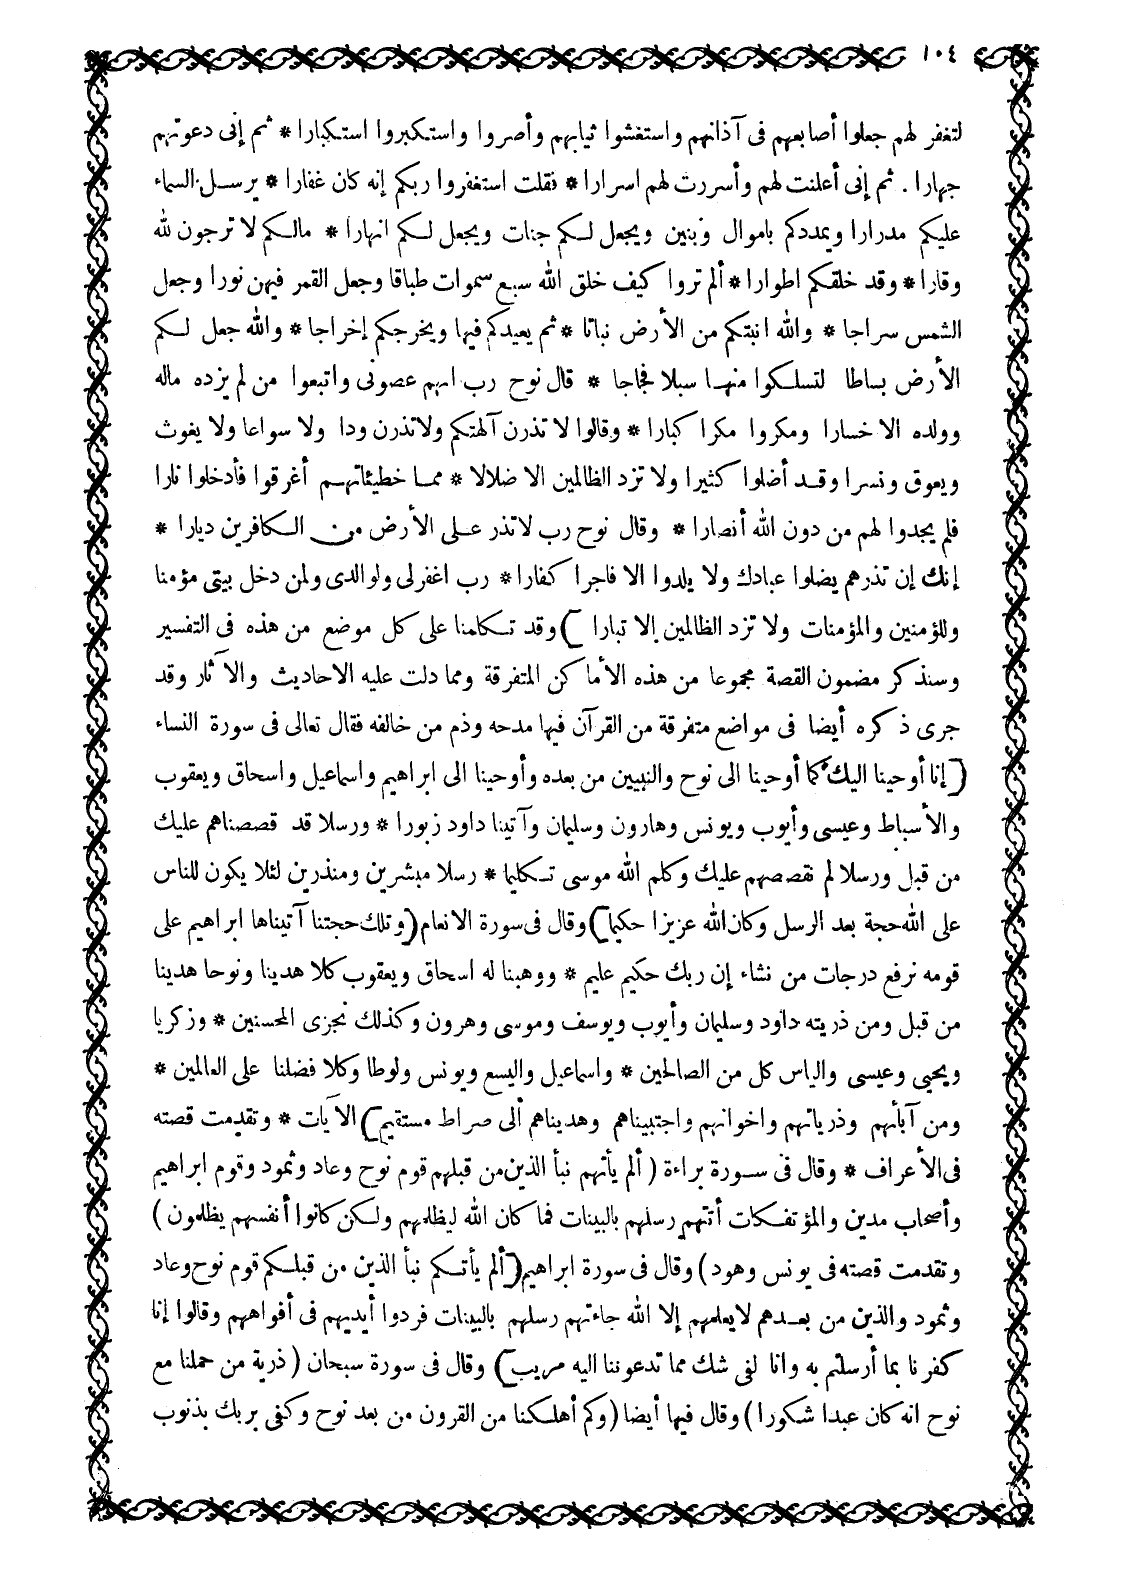 ١٠٤
لتغفر لهم جعلوا أصابعهم فى آذانهم واستغشوا ثيابهم وأصروا واستكبروا استكبارا * ثم إنى دعوتهم
جهارا . ثم إنى أعلنت لهم وأسررت لهم اسرارا * نقلت استغفروا ربكم إنه كان غفارا * يرسل السماء
عليكم مدرارا ويمددكم باموال وبنين ويجعل لكم جنات ويجعل لكم انهارا * مالكم لا ترجون لله
وقارا * وقد خلقكم اطوارا * ألم تروا كيف خلق الله سبع سموات طباقا وجعل القمر فيهن نورا وجعل
الشمس سراجا * والله انبتكم من الأرض نباتا * ثم يعيدكم فيها ويخرجكم إخراجا * والله جعل لكم
الأرض بساطا لتسلكوا منها سبلا فجاجا * قال نوح رب انهم عصونى واتبعوا من لم يزده ماله
وولده الا خسارا ومكروا مكرا كبارا * وقالوا لا تذرن آلهتكم ولا تذرن ودا ولا سواعا ولا يغوث
ويعوق ونسرا وقد أضلوا كثيرا ولا تزد الظالمين الا ضلالا * مما خطيئاتهم أغرقوا فأدخلوا نارا
فلم يجدوا لهم من دون الله أنصارا * وقال نوح رب لاتذر على الأرض من الكافرين ديارا *
إنك إن تذرهم يضلوا عبادك ولا يلدوا الا فاجرا كفارا * رب اغفرلى ولوالدى ولمن دخل بيتى مؤمنا
وللؤمنين والمؤمنات ولا تزد الظالمين إلا تبارا ) وقد تكلمنا على كل موضع من هذه فى التفسير
وسنذكر مضمون القصة مجموعا من هذه الأماكن المتفرقة ومما دلت عليه الاحاديث والآثار وقد
جرى ذكره أيضا فى مواضع متفرقة من القرآن فيها مدحه وذم من خالفه فقال تعالى فى سورة النساء
( إنا أوحينا اليك كما أوحينا الى نوح والنبيين من بعده وأوحينا الى ابراهيم واسماعيل واسحاق ويعقوب
والأسباط وعيسى وأيوب ويونس وهارون وسليمان وآتينا داود زبورا * ورسلا قد قصصناهم عليك
من قبل ورسلا لم نقصصهم عليك وكلم الله موسى تكليما * رسلا مبشرين ومنذرين لئلا يكون للناس
على الله حجة بعد الرسل وكان الله عزيزا حكيما ) وقال فى سورة الانعام ( وتلك حجتنا آتيناها ابراهيم على
قومه نرفع درجات من نشاء إن ربك حكيم عليم * ووهبنا له اسحاق ويعقوب كلا هدينا ونوحا هدينا
من قبل ومن ذريته داود وسليمان وأيوب ويوسف وموسى وهرون وكذلك نجزى المحسنين * وزكريا
ويحيى وعيسى والياس كل من الصالحين * واسماعيل واليسع ويونس ولوطا وكلا فضلنا على العالمين *
ومن آبأئهم وذرياتهم واخوانهم واجتبيناهم وهديناهم ألى صراط مستقيم ) الآيات * وتقدمت قصته
فى الأعراف * وقال فى سورة براءة ( ألم يأتهم نبأ الذين من قبلهم قوم نوح وعاد وثمود وقوم ابراهيم
وأصحاب مدين والمؤتفكات أتتهم رسلهم بالبينات فما كان الله ليظلمهم ولكن كانوا أنفسهم يظلمون )
وتقدمت قصته فى يونس وهود ) وقال فى سورة ابراهيم ( ألم يأتكم نبأ الذين من قبلكم قوم نوح وعاد
وثمود والذين من بعدهم لا يعلمهم إلا الله جاءتهم رسلهم بالبينات فردوا أيديهم فى أفواههم وقالوا إنا
كفرنا بما أرسلتم به وانا لفى شك مما تدعوننا اليه مريب ) وقال فى سورة سبحان ( ذرية من حملنا مع
نوح انه كان عبدا شكورا ) وقال فيها أيضا ( وكم أهلكنا من القرون من بعد نوح وكفى بربك بذنوب